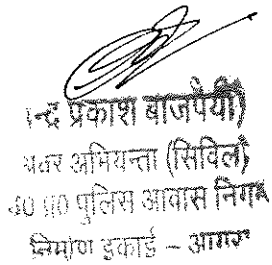 न्द्र प्रकाश बाजपेयी)
अवर अभियन्ता (सिविल)
उ0 प्र0 पुलिस आवास निगम
निर्माण इकाई – आगरा